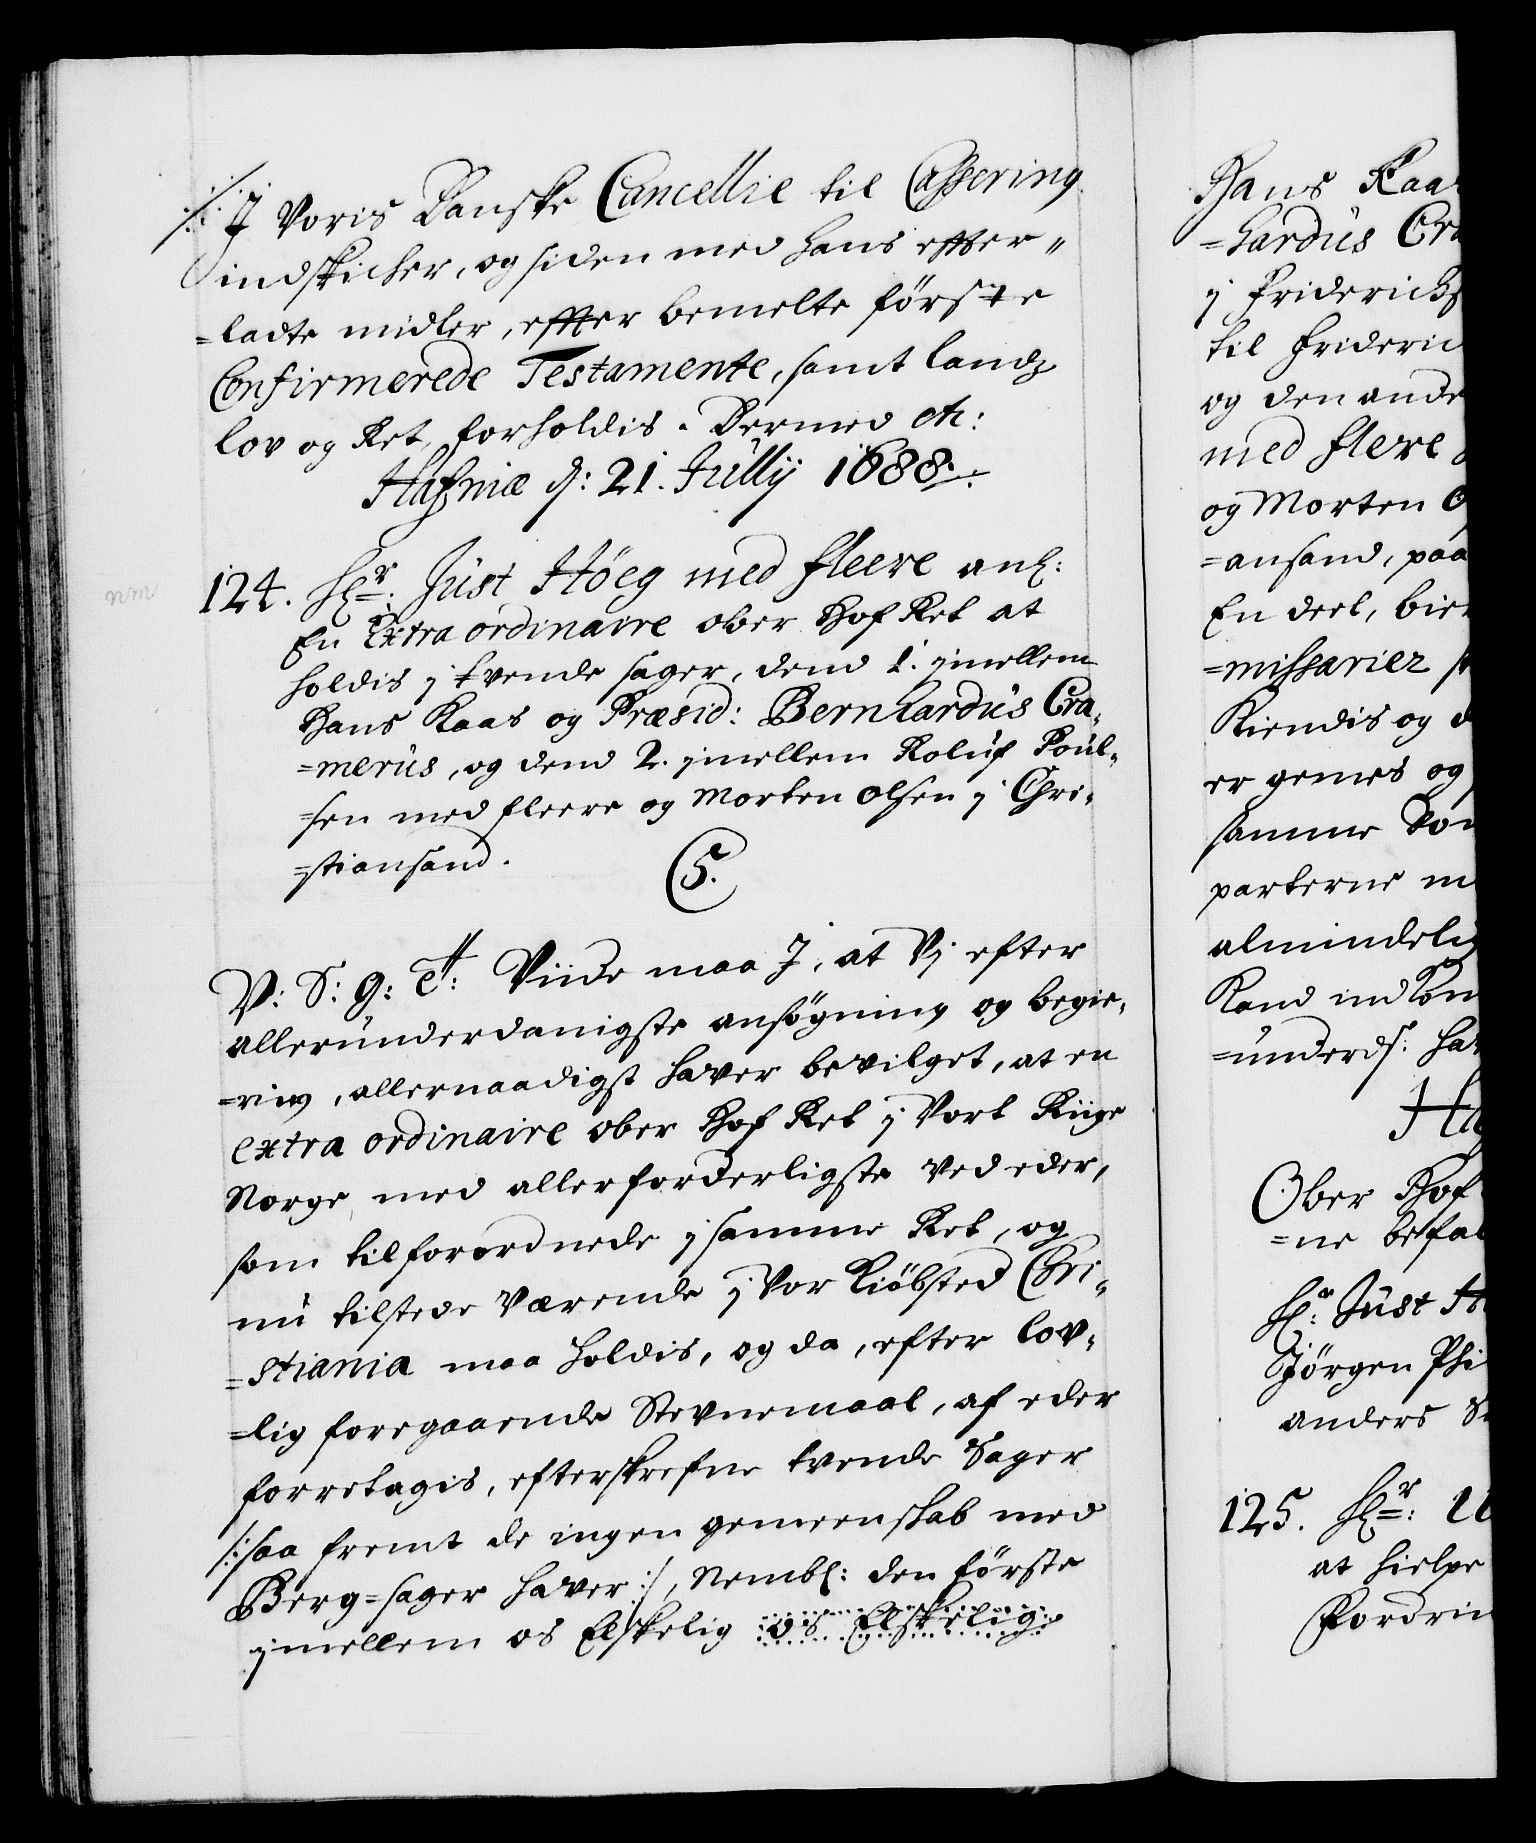 J Voris Danske Cancellie til Cassering
indskicker, og siden med hans effter"
=ladte midler, effter bemelte förste
Confirmerede Testamente, samt landz
lov og Ret, forholdis. Dermed etc:
Hafniæ d: 21. Jullij 1688.
124. Hr: Just Höeg med fleere anl:
En Extra ordinaire ober Hof Ret at
holdis j tvende sager, dend 1. jmellem
Hans Kaas og Præsid: Bernhardus Cra-
=merus, og dend 2. jmellem Roluf Poul-
=sen med fleere og Morten Olsen j Chri-
=stiansand.
C5.
V: S: G: T: Viide maa J, at Vj efter
allerunderdanigste ansøgning og begie-
=ring, allernaadigst haver bevilget, at en
extra ordinaire ober Hof Ret j Vort Riige
Norge med allerforderligste ved eder,
som tilforordnede j samme Ret, og
nu tilstede værende j Vor Kiöbsted Chri-
=stiania maa holdis, og da, efter lov-
=lig foregaaende Stevnemaal, af eder
forretagis, efterskrefne tvende Sager
/:saa fremt de ingen gemeenskab med
Berg=sager haver:/, Nembl: den förste
jmellem os Elskelig os Elskelig
Hans Kaa
=hardus Cra
j Friderichs
til Frideric
og den ande
med flere
og Morten O
=ansand, paa
En deel, bie
=missarier
Kiendis og d
er gemes og
samme Dom
parterne m
almindelig
Kand ind kom
=underd: ha
Ha
Ober Hof
=ne befal
Hr: Just H
Jörgen Phi
anders S
125. Hr:
at hielpe
Fordrin